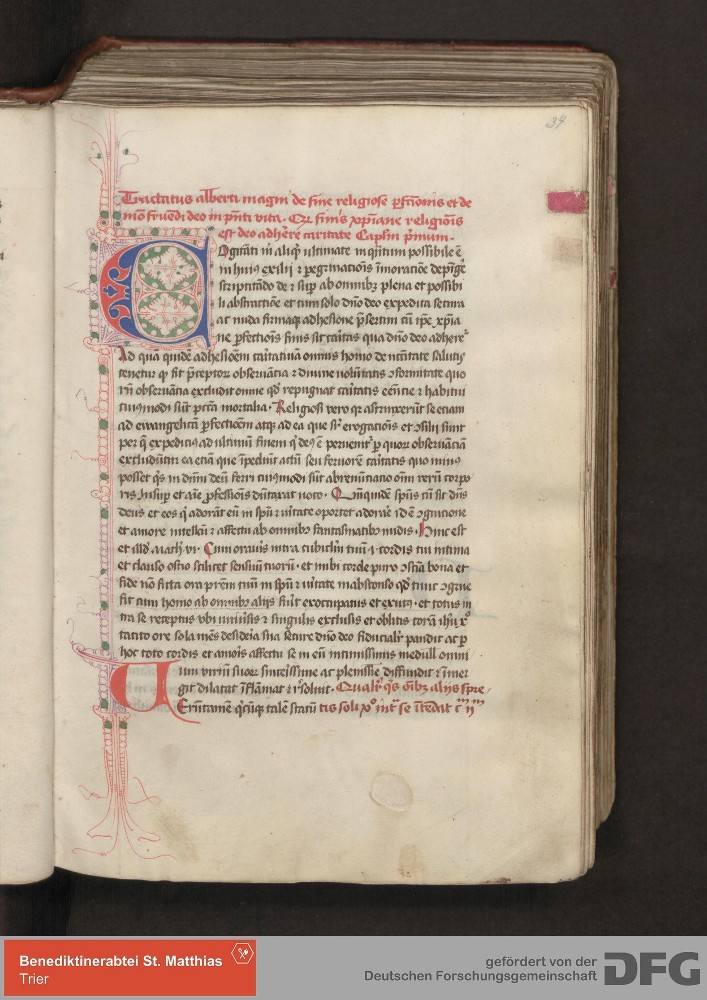 34
Tractatus alberti magni de fine religiose pfectionis et de
mo fruendi deo in pnti vita. Qr finis xpiane religiois
est deo adherere caritate Caplm pmum.
Cogitati m aliqd ultimate in quntum possibile e
in huius exilij et pegrinatiois imoracoe depinge
scriptitado de et sup ab omnibus plena et possibi
li abstractioe et cum solo dno deo expedita secura
ac nuda firmaq adhesione psertim cu ipe xpia
ne pfectiois finis sit caritas qua dno deo adheret
Ad qua quide adhesioem caritatiuam omnis homo de necitate salutis
tenetur q fit pceptor obseruatia et diuine volutatis oformitate quo
rum obseruatia excludit omne qd repugnat caritatis eentie et habitui
cuiusmodi sut pcta mortalia. Religiosi vero qr astrinxerut se etiam
ad ewangelica pfectioem atq ad ea que st erogationis et osilij sunt
per q expeditius ad ultimu finem q deus e peruenitur p quor obseruatia
excludutur ea etia que ipediut actu seu feruorem caritatis quo minus
posset qs in dnm deu ferri cuiusmodi sut abrenutiatio oim reru corpo
ris Insup et aie pfessiois dutaxat voto. Qm quide spus cu sit dns
deus et eos q adorat eu in spu et vitate oportet adorare id e ognicione
et amore intellcu et affectu ab omnibus fantasmatibus nudis. Hinc est
et illd Math vi. Cum oraueris intra cubiclm tuu .i. cordis tui intima
et clauso ostio scilicet sensuu tuoru. et inibi corde puro oscia bona et
fide no ficta ora prem tuu in spu et vitate in abscondito qd tunc ogrue
fit cum homo ab omnibus alijs fuit exoccupatus et exutus. et totus in
tra se receptus vbi uniuersis et singulis exclusis et oblitis cora ihu xo
tacito ore sola mens desideria sua secure dno deo fiducialiter pandit ac p
hoc toto cordis et amoris affectu se in eu intimissimis medull omni
um viriu suor sincerissime ac plenissime diffundit et imer
git dilatat iflamat et resoluit. Qualiter qs oibus alijs spre
Verutamen qcuq tale statu tis soli xo inte se itedat c m ij
Benediktinerabtei St. Matthias
Trier
gefördert von der
Deutschen Forschungsgemeinschaft
DFG